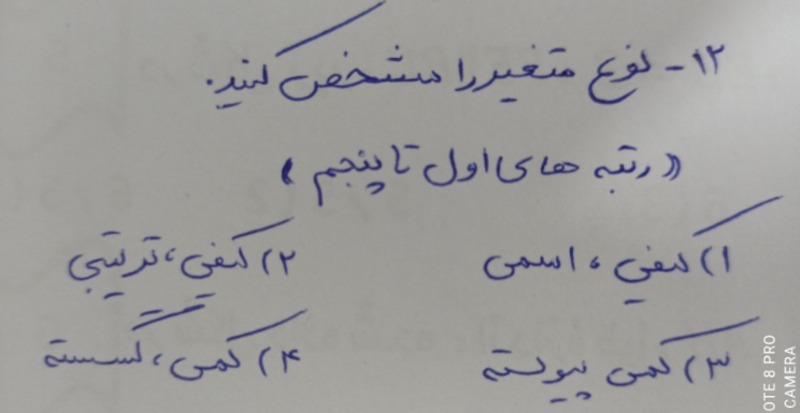 ۱۲- نوع متغیر را مشخص کنید.
(( رتبه های اول تا پنجم ))
۱) کیفی ، اسمی ۲) کیفی ، ترتیبی
۳) کمی پیوسته ۴) کمی ، گسسته
OTE 8 PRO
CAMERA